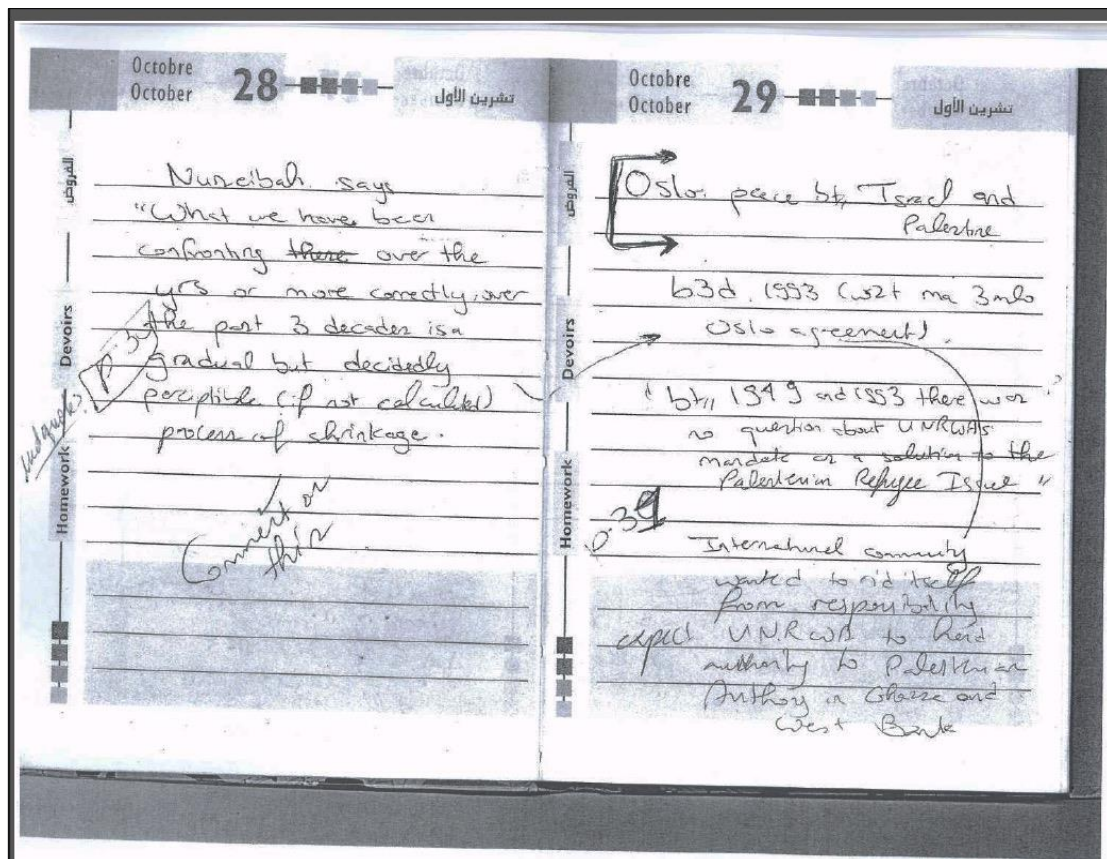 Octobre
October
28
تشرين الأول
الفروض
Devoirs
Homework
Nuseibah says
"What we have been
confronting there over the
yrs or more correctly, over
the past 3 decades is a
gradual but decidedly
perciptible (if not calculated)
process of shrinkage.
Comment on
this
Octobre
October
29
تشرين الأول
الفروض
Devoirs
Homework
Oslo: peace bt,, Israel and
Palestine
b3d 1993 (w2t ma 3mlo
Oslo agreement).
"bt,, 1949 and 1993 there was
no question about UNRWA's
mandate or a solution to the
Palestenian Refugee Issue"
p.39
International community
wanted to rid itself
from responsibility
expect UNRWA to hand
authority to Palestenian
Authory in Ghazze and
West Bank